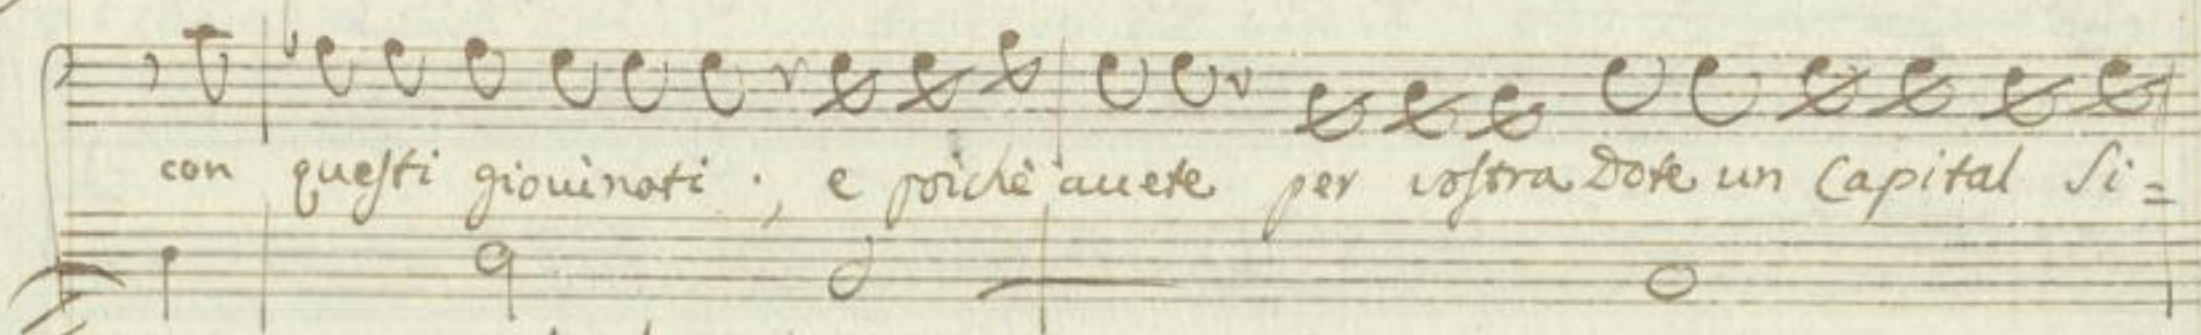 con questi giouinoti ; e poichè auete per vostra Dote un Capital Si=